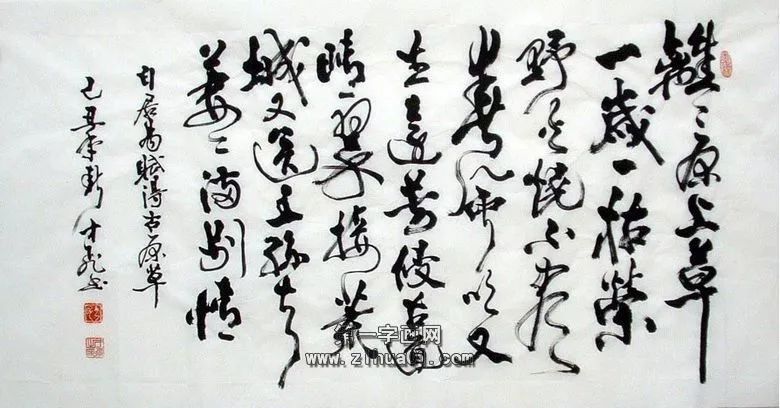 離〻原上草
一歲一枯榮
野火燒不盡
春風吹又
生遠芳侵古道
晴翠接荒
城又送王孫去
萋〻滿別情
白居易賦得古原草
己丑年
一字画网